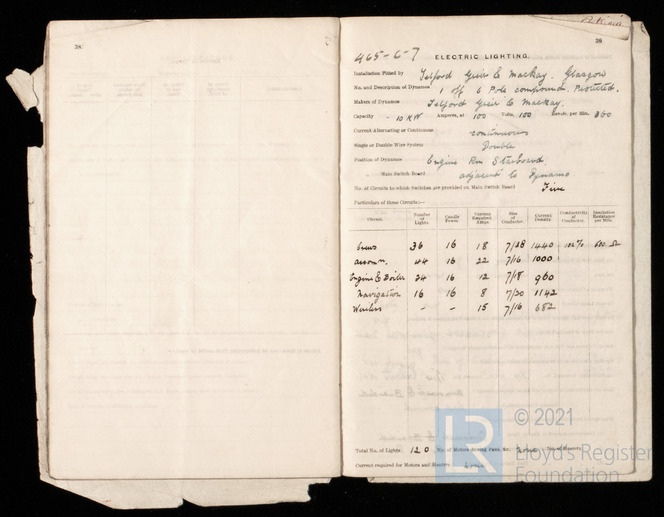 38.
39
465-6-7
ELECTRIC LIGHTING.
Installation Fitted by Telford Grier & Mackay. Glasgow
No. and Description of Dynamos 1 off 6 Pole compound. Protected.
Makers of Dynamos Telford Grier & Mackay.
Capacity 10 KW Amperes, at 100 Volts, 100 Revols. per Min. 360
Current Alternating or Continuous continuous
Single or Double Wire System Double
Position of Dynamos Engine Rm Starboard
Main Switch Board adjacent to Dynamo
No. of Circuits to which Switches are provided on Main Switch Board Five
Particulars of these Circuits:—
Circuit. Number of Lights. Candle Power. Current Required Amps. Size of Conductor. Current Density. Conductivity of Conductor. Insulation Resistance per Mile.
Crews 36 16 18 7/18 1440 102% 600 Ω
Accomn. 44 16 22 7/16 1000
Engine & Boiler 24 16 12 7/18 960
Navigation 16 16 8 7/20 1142
Wireless - - 15 7/16 682
Total No. of Lights 120 No. of Motors driving Fans, &c. No. of Heaters
Current required for Motors and Heaters
LR
© 2021
Lloyd's Register
Foundation